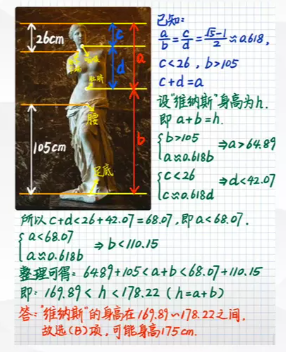 26cm
c
a
d
腰
b
105cm
足底
已知:
a/b = c/d = (√5-1)/2 ≈ 0.618,
c<26, b>105
c+d=a
设"维纳斯"身高为h.
即 a+b=h.
{b>105
a≈0.618b ⇒a>64.89
{c<26
c≈0.618d ⇒d<42.07
所以 c+d<26+42.07=68.07,即a<68.07.
{a<68.07
a≈0.618b ⇒b<110.15
整理可得: 64.89+105<a+b<68.07+110.15
即: 169.89<h<178.22 (h=a+b)
答:"维纳斯"的身高在169.89~178.22之间,
故选(B)项,可能身高175cm.